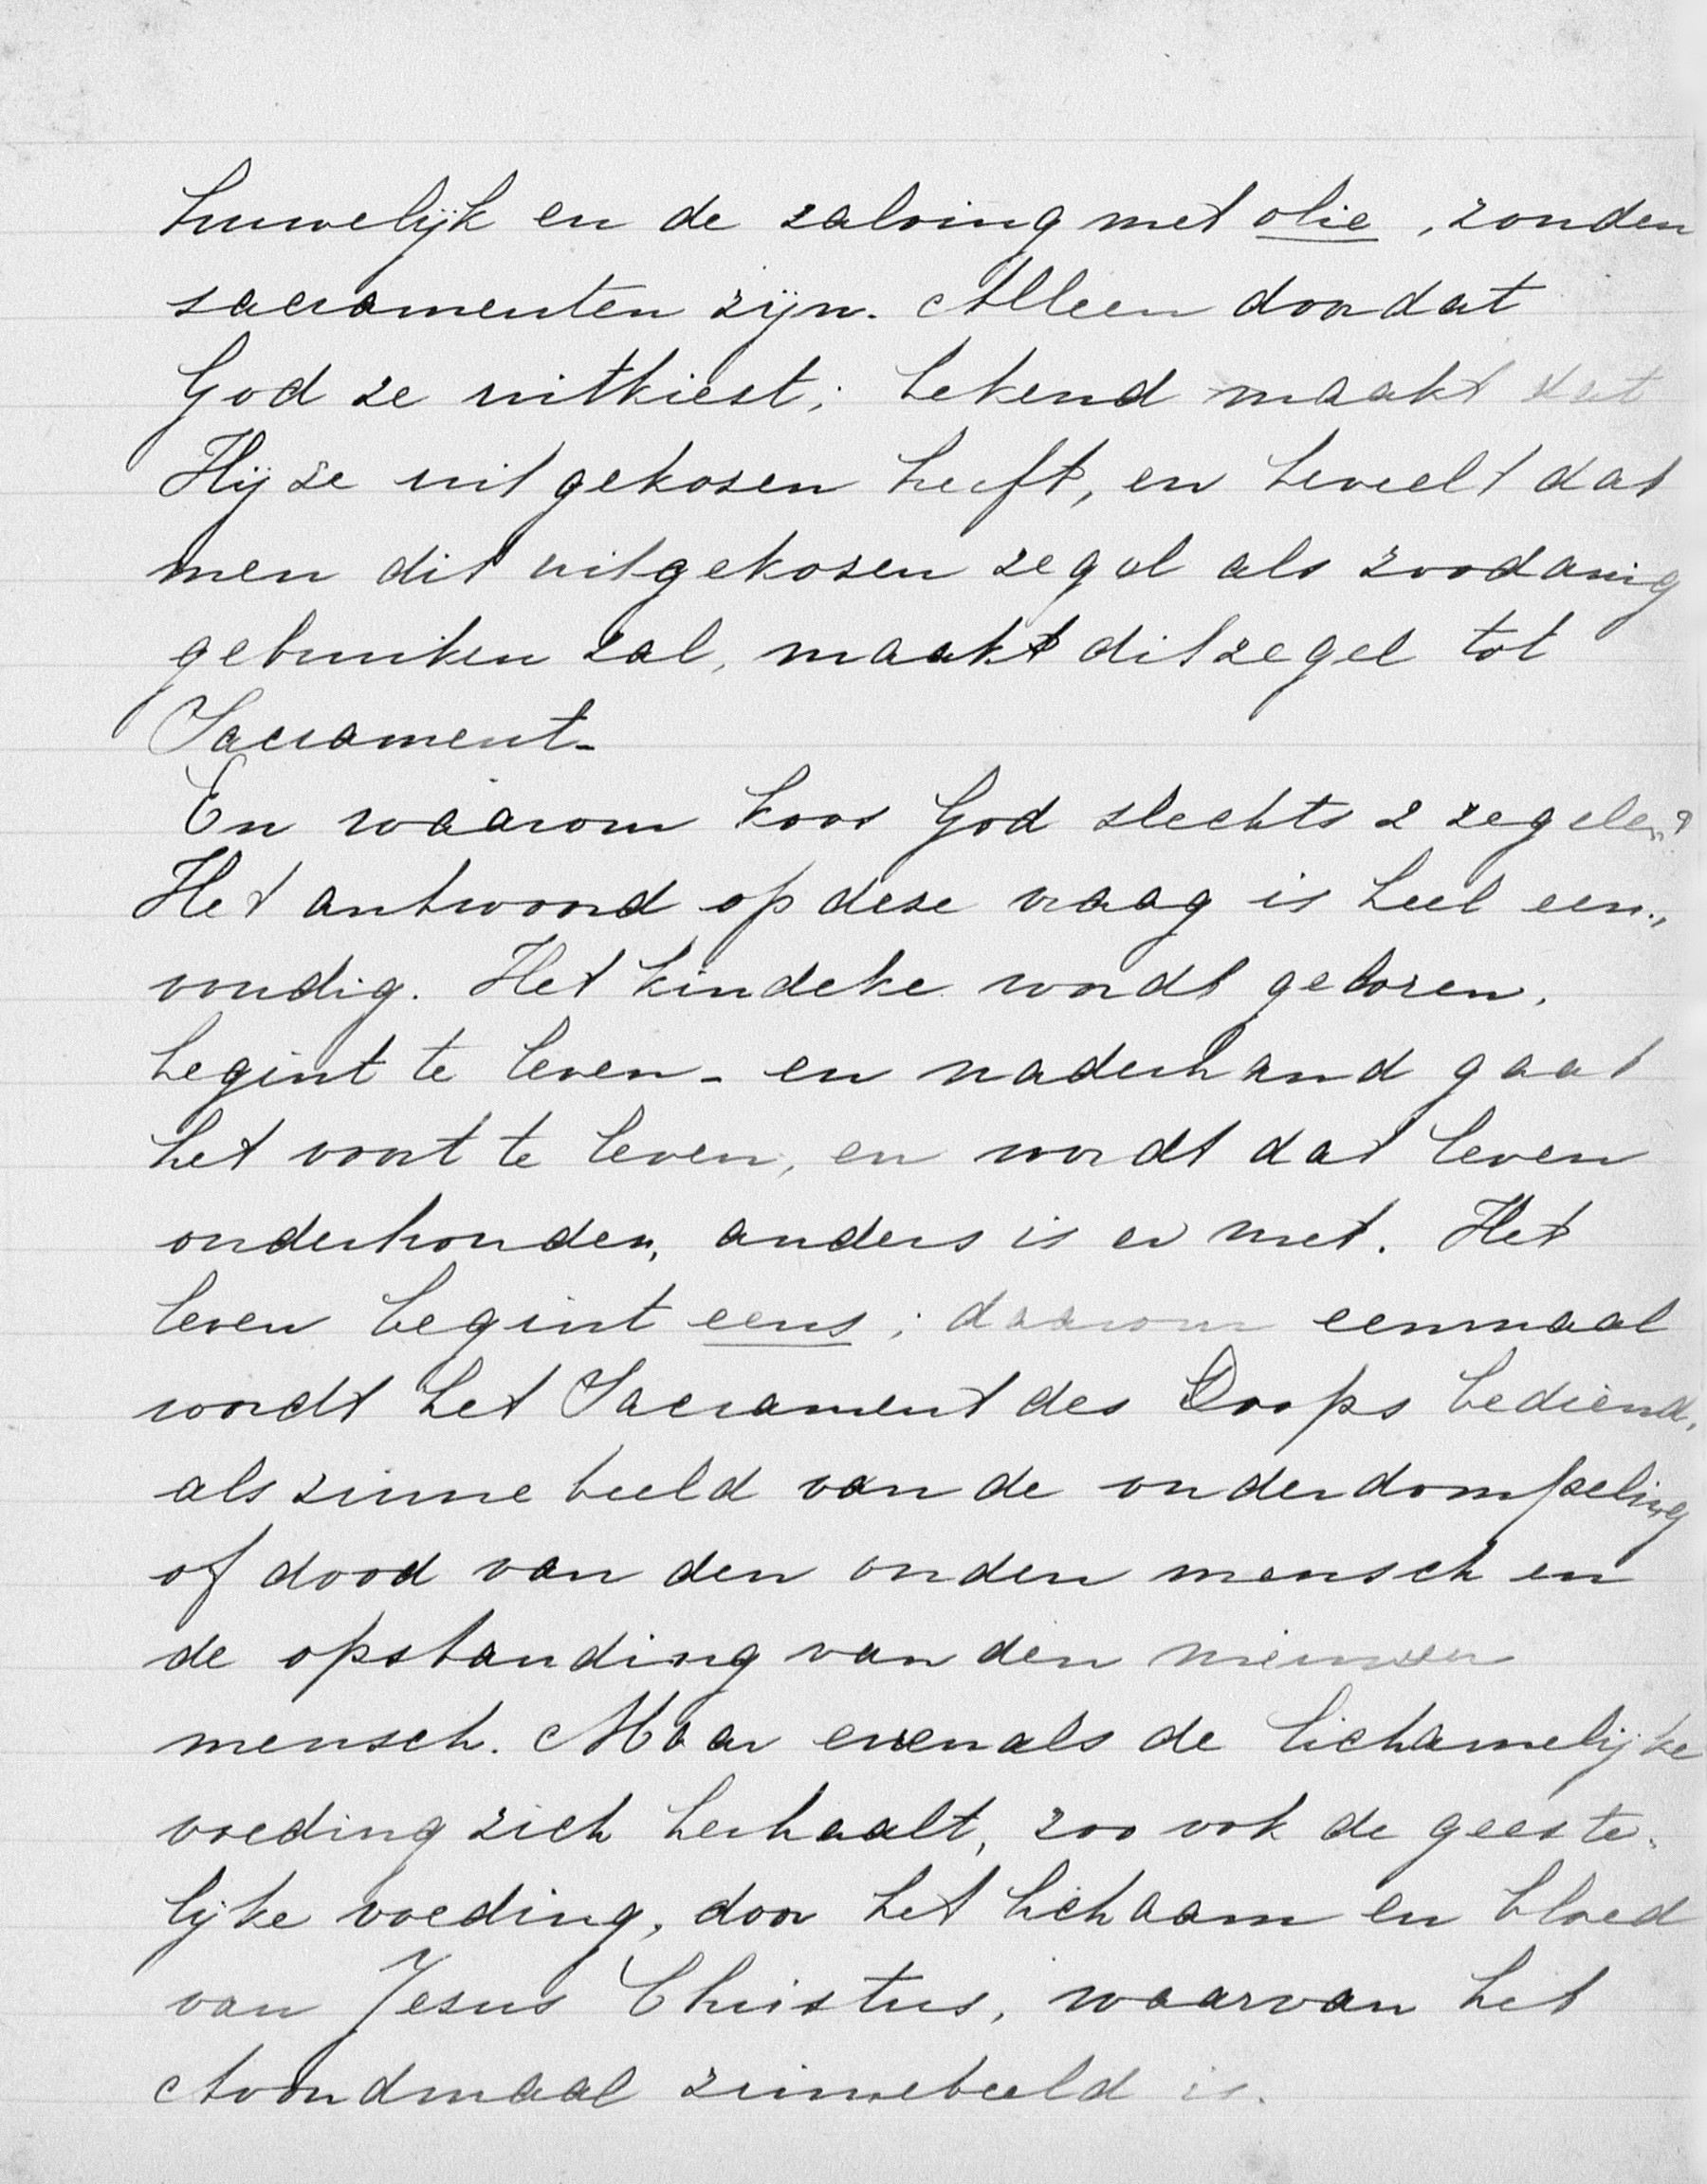 huwelijk en de zalving met olie, zouden
sacramenten zijn. Alleen doordat
God ze uitkiest; bekend maakt dat
Hij ze uitgekozen heeft, en beveelt dat
men dit uitgekozen zegel als zoodanig
gebruiken zal, maakt dit zegel tot
Sacrament.
En waarom koos God slechts 2 zegelen?
Het antwoord op deze vraag is heel een„
voudig. Het kindeke wordt geboren,
begint te leven - en naderhand gaat
het voort te leven, en wordt dat leven
onderhouden, anders is er niet. Het
leven begint eens; daarom eenmaal
wordt het Sacrament des Doops bediend,
als zinnebeeld van de onderdompeling
of dood van den ouden mensch en
de opstanding van den nieuwen
mensch. Maar evenals de lichamelijke
voeding zich herhaalt, zoo ook de geeste-
lijke voeding, door het lichaam en bloed
van Jesus Christus, waarvan het
Avondmaal zinnebeeld is.